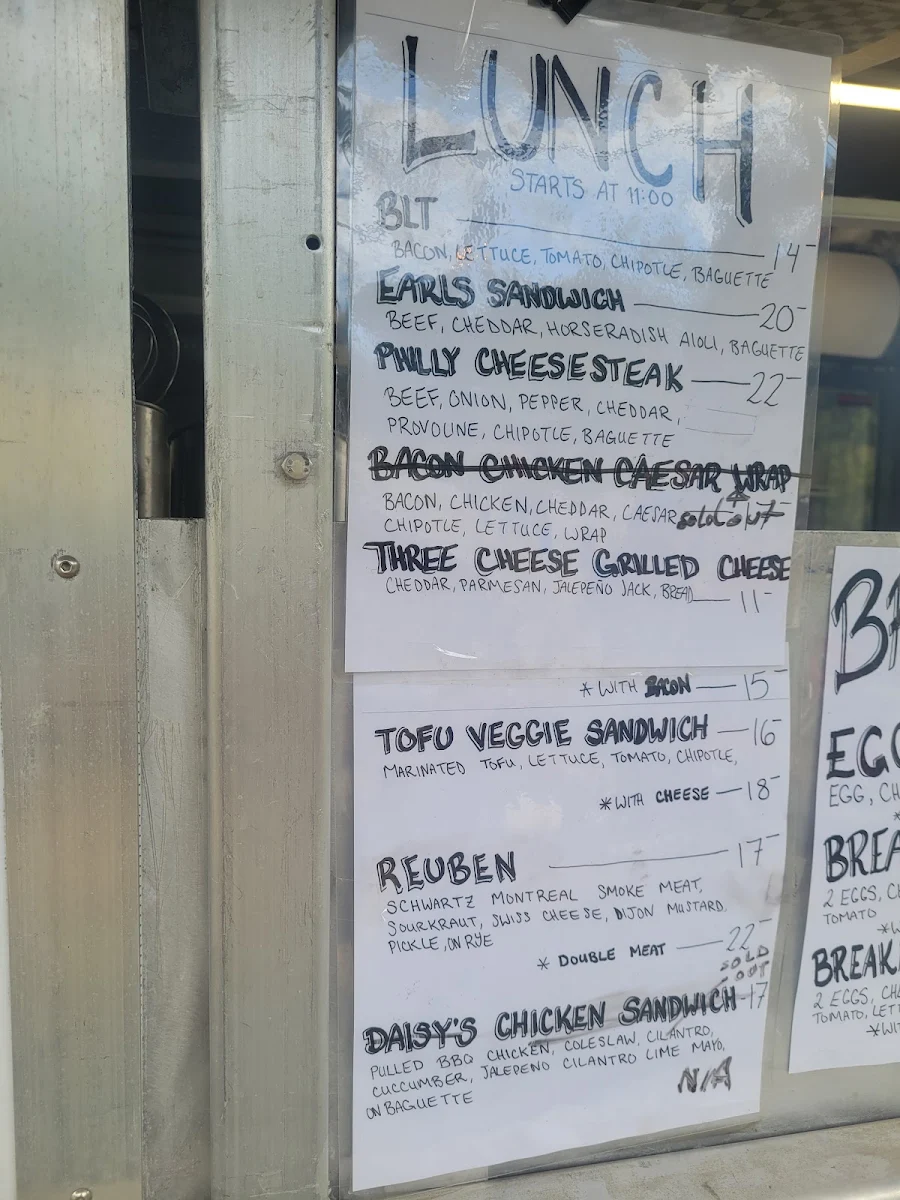 LUNCH
STARTS AT 11:00
BLT 14-
BACON, LETTUCE, TOMATO, CHIPOTLE, BAGUETTE
EARLS SANDWICH 20-
BEEF, CHEDDAR, HORSERADISH AIOLI, BAGUETTE
PHILLY CHEESESTEAK 22-
BEEF, ONION, PEPPER, CHEDDAR,
PROVOLINE, CHIPOTLE, BAGUETTE
BACON CHICKEN CAESAR WRAP
BACON, CHICKEN, CHEDDAR, CAESAR, sold out
CHIPOTLE, LETTUCE, WRAP
THREE CHEESE GRILLED CHEESE
CHEDDAR, PARMESAN, JALEPEÑO JACK, BREAD 11-
* WITH BACON 15-
TOFU VEGGIE SANDWICH 16-
MARINATED TOFU, LETTUCE, TOMATO, CHIPOTLE,
* WITH CHEESE 18-
REUBEN 17-
SCHWARTZ MONTREAL SMOKE MEAT,
SOURKRAUT, SWISS CHEESE, DIJON MUSTARD,
PICKLE, ON RYE
* DOUBLE MEAT 22-
SOLD
OUT
DAISY'S CHICKEN SANDWICH 17
PULLED BBQ CHICKEN, COLESLAW, CILANTRO,
CUCCUMBER, JALEPENO CILANTRO LIME MAYO,
ON BAGUETTE
N/A
BA
EGG
EGG, CH
BREA
2 EGGS, CH
TOMATO
*W
BREAK
2 EGGS, CHE
TOMATO, LETT
*WIT